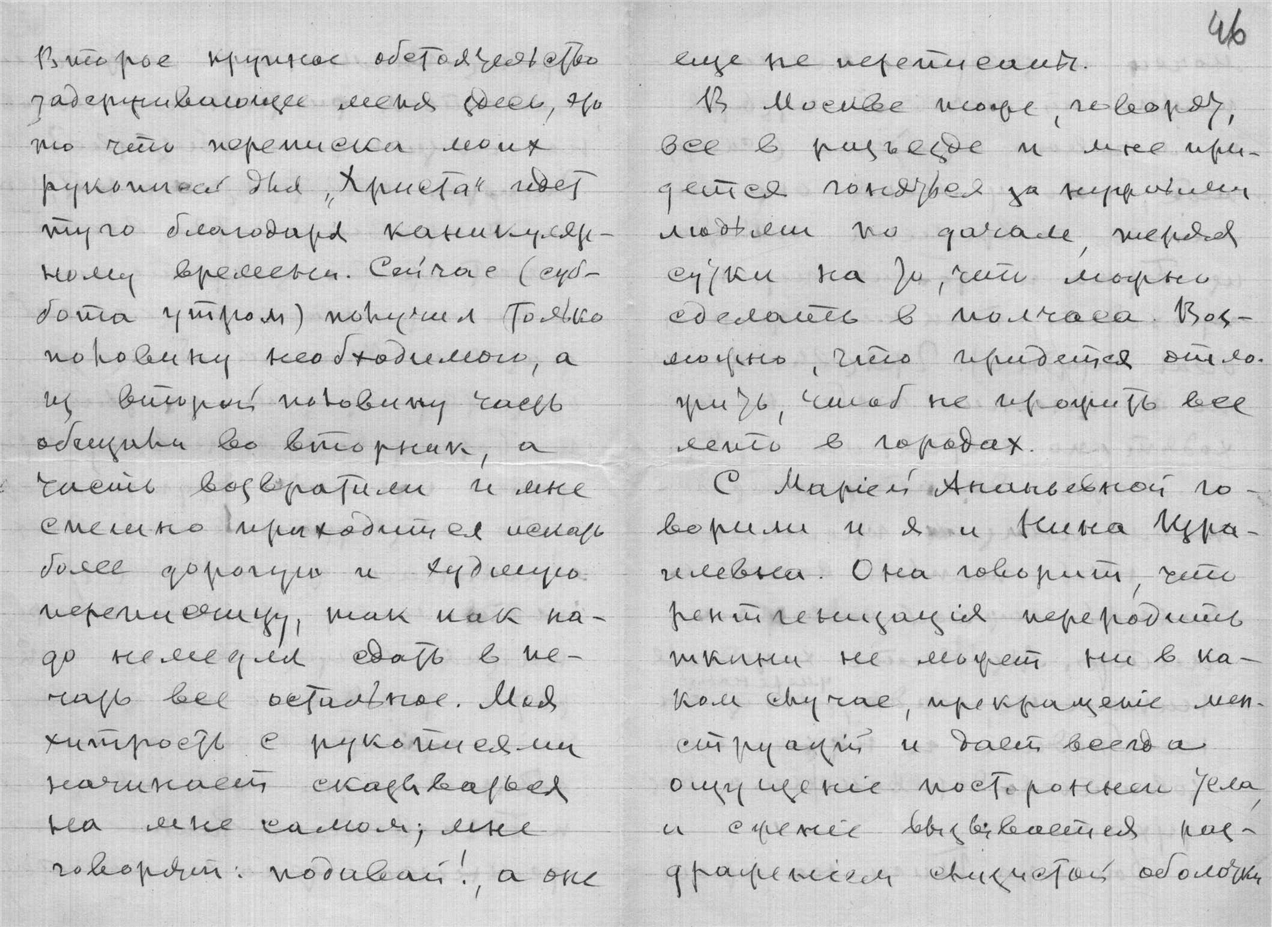 46
Второе крупное обстоятельство
задерживающее меня здесь, это
то что переписка моих
рукописей для „Христа“ идет
туго благодаря каникуляр-
ному времени. Сейчас (суб-
бота утром) получил только
половину необходимого, а
из второй половину часть
обещали во вторник, а
часть возвратили и мне
спешно приходится искать
более дорогую и худшую
переписчицу, так как на-
до немедля сдать в пе-
чать все остальное. Моя
хитрость с рукописями
начинает сказываться
на мне самом; мне
говорят: подавай!, а они
еще не переписаны.
В Москве тоже, говорят,
все в разъезде и мне при-
дется гоняться за нужными
людьми по дачам, теряя
сутки на то, что можно
сделать в полчаса. Воз-
можно, что придется отло-
жить, чтоб не прожить все
лето в городах.
С Марiей Ананьевной го-
ворили и я и Нина Изра-
илевна. Она говорит, что
рентгенизацiя переродить
ткани не может, ни в ка-
ком случае, прекращенiе мен-
струацiй и дает всегда
ощущенiе посторонняго тела,
и сженiе вызывается раз-
драженiем слизистой оболочки